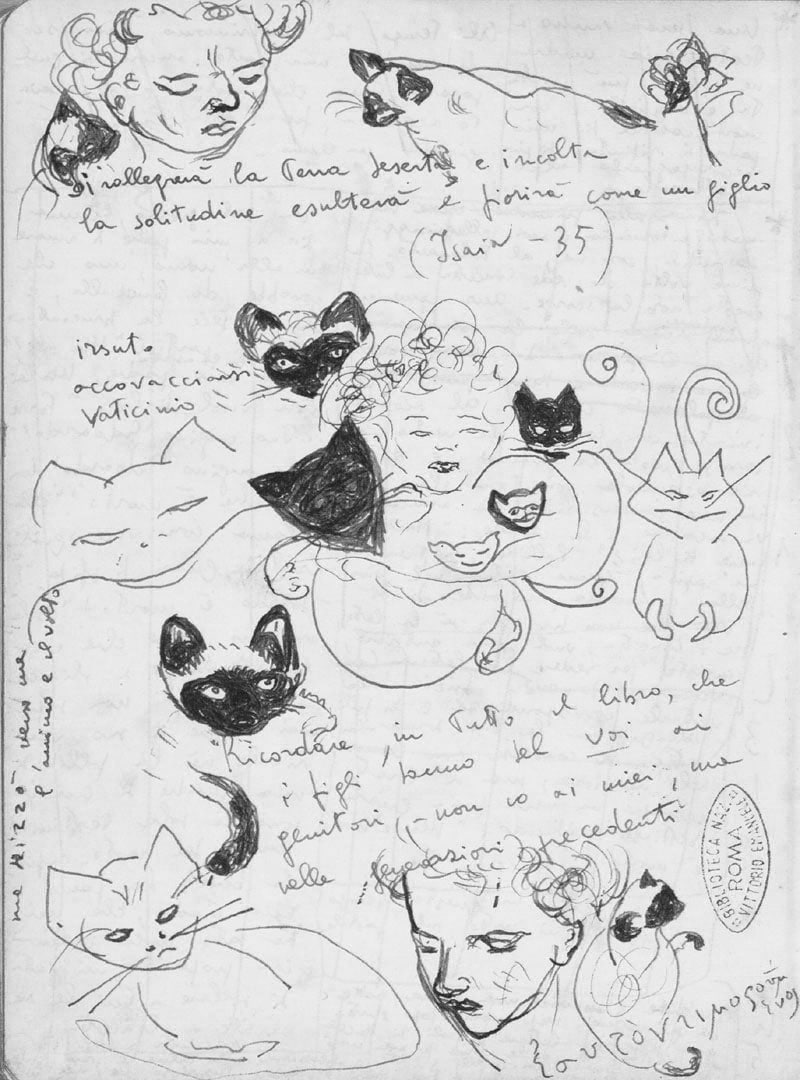 Si rallegrerà la Terra deserta e incolta
la solitudine esulterà e fiorirà come un giglio
(Isaia - 35)
irsuto
accovacciarsi
Vaticinio
me rizzò verso me
l'animo e il volto
Ricordare, in tutto il libro, che
i figli danno del voi ai
genitori, (- non io ai miei, ma
nelle generazioni precedenti
BIBLIOTECA NAZ.
ROMA
VITTORIO EMANUELE